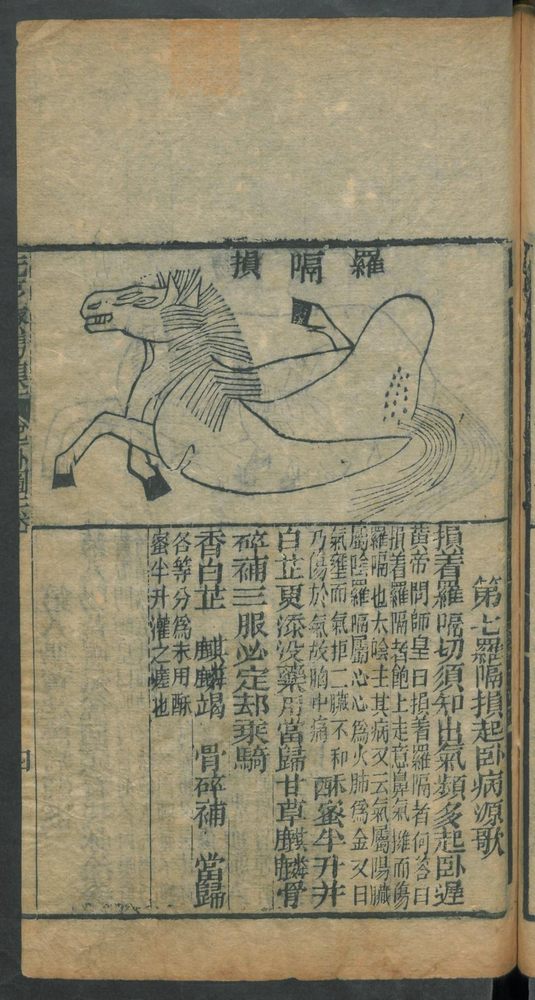 羅嗝損
第七羅隔損起卧病源歌
損着羅嗝切須知出氣頻多起卧遲
黃帝問師皇曰損着羅隔者何荅曰
損着羅隔者飽上走急鼻氣擁而傷
羅嗝也太陰主其病又云氣屬陽臟
屬陰羅嗝屬心心爲火肺爲金又曰
氣壅而氣拒二臟不和
乃傷於氣故胸中痛
酥蜜半升并
白芷更添没藥用當歸甘草麒麟骨
碎補三服必定却乘騎
香白芷 麒麟竭 骨碎補 當歸
各等分爲末用酥
蜜半升灌之瘥也
四